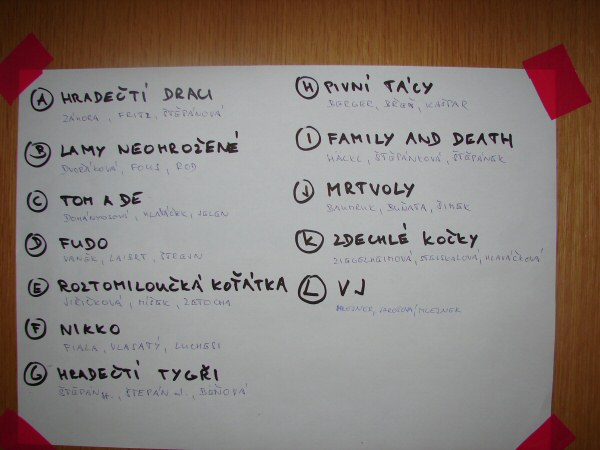 A HRADEČTÍ DRACI
ZÁHORA, FRITZ, ŠTĚPÁNOVÁ
B LAMY NEOHROŽENÉ
DVOŘÁKOVÁ, FOUS, ROD
C TOM A DE
DOHÁNYOSOVÁ, HLAVÁČEK, JELEN
D FUDO
VANĚK,
E ROZTOMILOUČKÁ KOŤÁTKA
JIŘIČKOVÁ, MÍŽEK, ZATOCHA
F NIKKO
FIALA, VLASATÝ, LUCHESI
G HRADEČTÍ TYGŘI
ŠTĚPÁN st., ŠTEPÁN ml., BEŇOVÁ
H PIVNÍ TÁCY
BERGER, BŘEŇ, KAŠPAR
I FAMILY AND DEATH
HACKL, ŠTĚPÁNKOVÁ, ŠTĚPÁNEK
J MRTVOLY
BAUDRUK, BUŇATA, ŠIMEK
K ZDECHLÉ KOČKY
ZIEGELHEIMOVÁ, STEJSKALOVÁ, HLAVÁČKOVÁ
L VJ
MLEJNEK